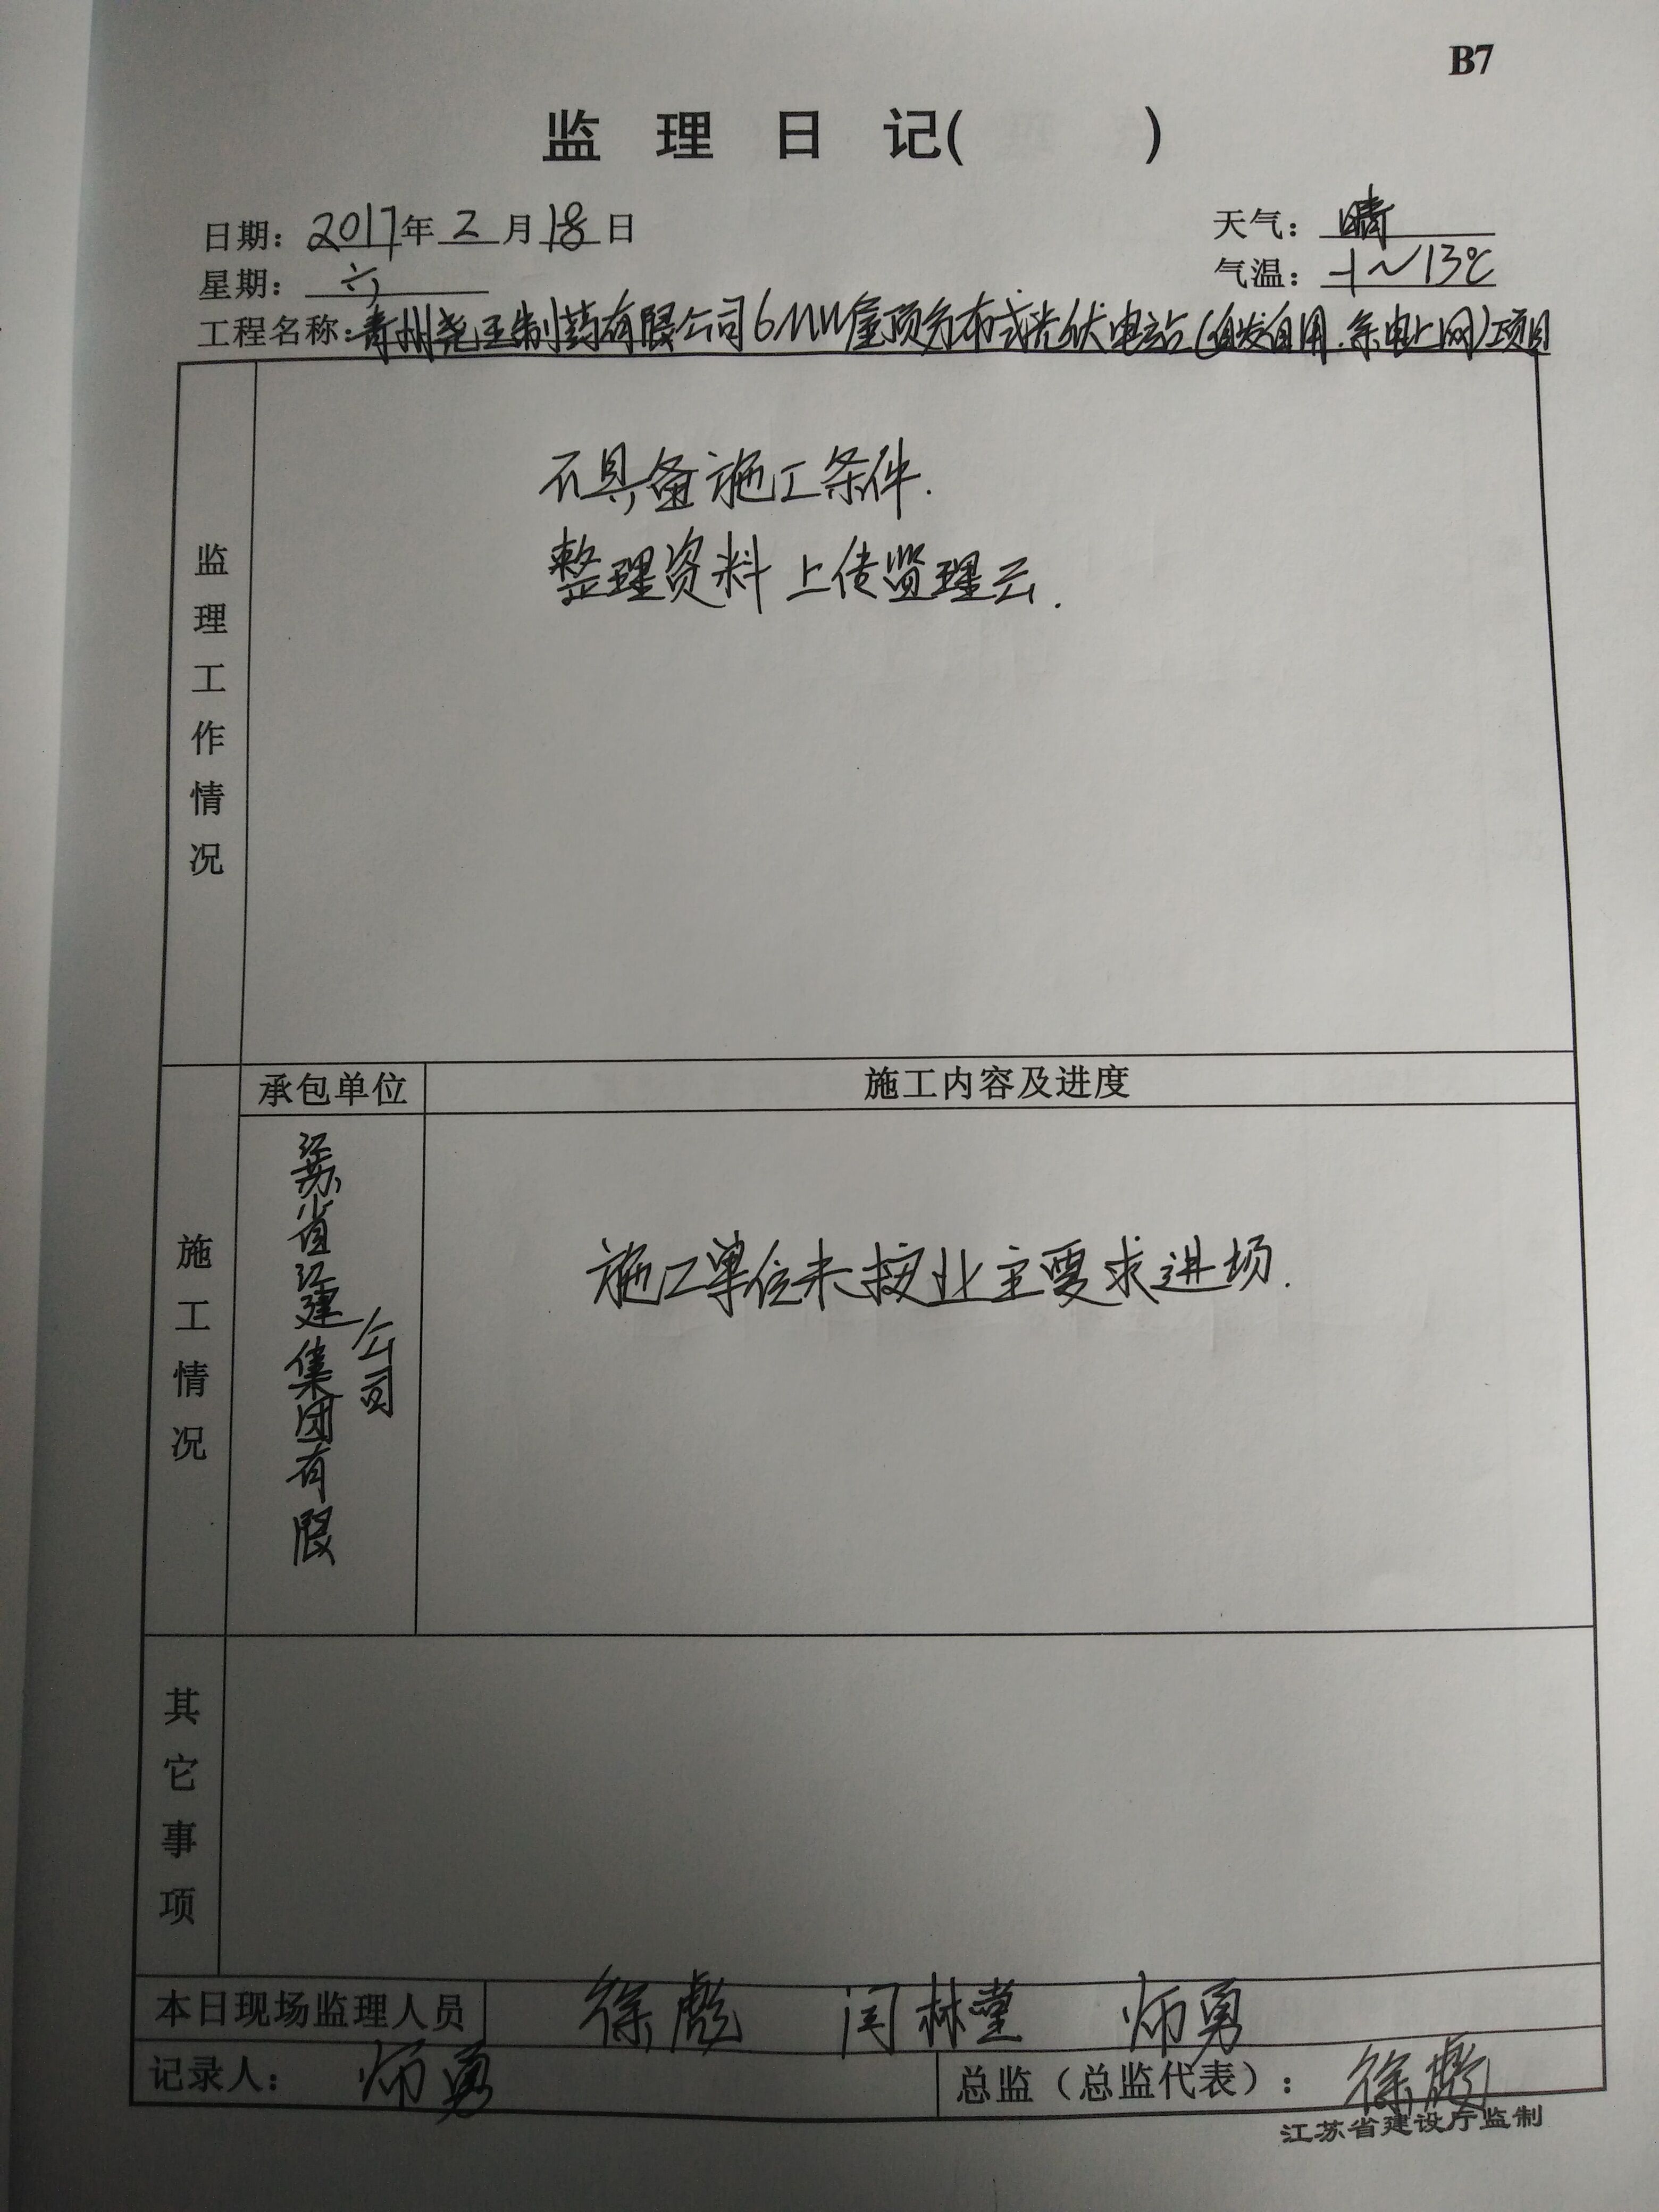 B7
监理日记(　　)
日期：2017年2月18日　天气：晴
星期：六　气温：-1～13℃
工程名称：青州尧王制药有限公司6MW屋顶分布式光伏电站(自发自用.余电上网)项目
监理工作情况
不具备施工条件.
整理资料上传监理云.
施工情况
承包单位　施工内容及进度
江苏省江建集团有限公司
施工单位未按业主要求进场.
其它事项
本日现场监理人员　徐彪　闫林堂　师勇
记录人：师勇　总监（总监代表）：徐彪
江苏省建设厅监制